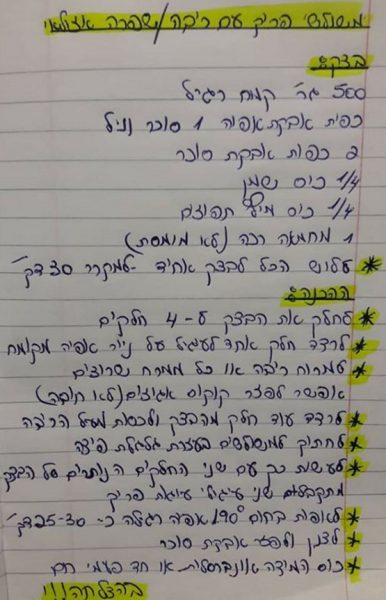 משולשי פריך עם ריבה/שפרה אצולאי
בצק:
500 גר' קמח רגיל
כפית אבקת אפיה 1 סוכר וניל
2 כפות אבקת סוכר
1/4 כוס שמן
1/4 כוס מיץ תפוזים
1 מחמאה רכה (לא מומסת)
* ללוש הכל לבצק אחיד -למקרר 30 דק'
ההכנה:
* לחלק את הבצק ל-4 חלקים
* לרדד חלק אחד לעיגול על נייר אפיה מקומח
* למרוח ריבה או כל ממרח שרוצים
אפשר לפזר קוקוס אגוזים (לא חובה)
* לרדד עוד חלק מהבצק ולכסות מעל הריבה
* לחתוך למשולשים בעזרת גלגלת פיצה
* לעשות כך עם שני החלקים הנותרים של הבצק
מתקבלים שני עיגולי עוגת פריך
* לאפות בחום 190° אפיה רגילה כ- 25-30 דק'
* לצנן ולפזר אבקת סוכר
* כוס המידה אוניברסלית או חד פעמי חם
בהצלחה!!!